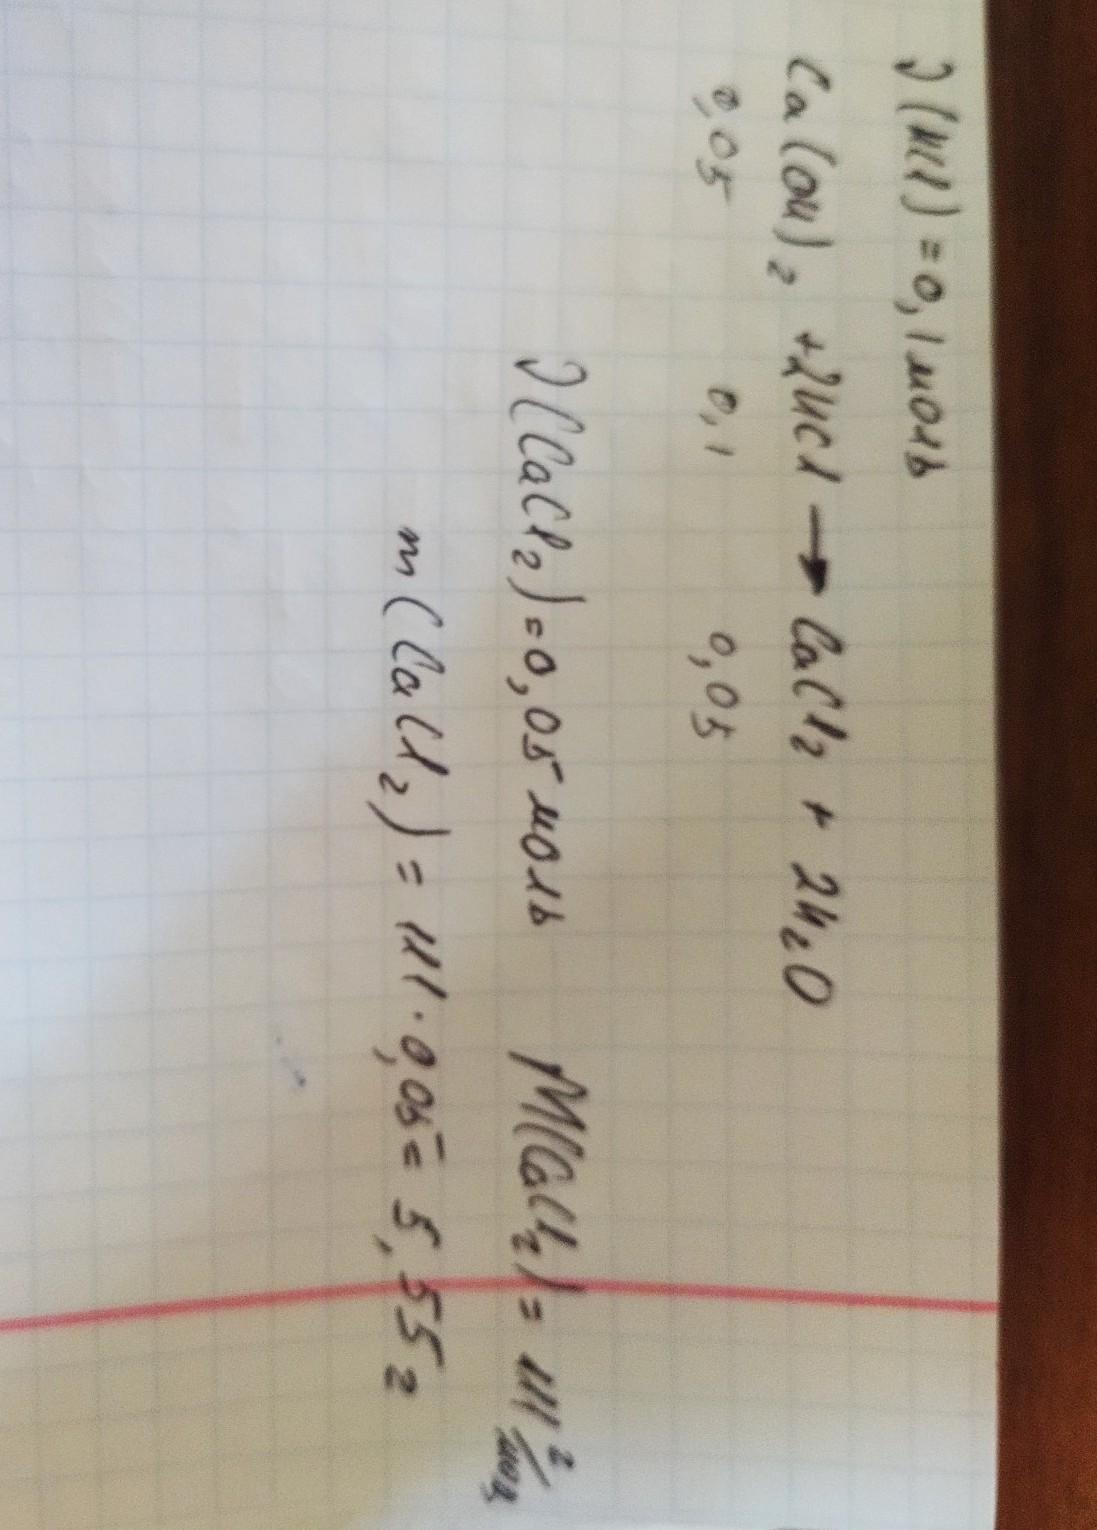 ν(HCl) = 0,1 моль
Ca(OH)₂ + 2HCl → CaCl₂ + 2H₂O
0,05 0,1 0,05
ν(CaCl₂) = 0,05 моль M(CaCl₂) = 111 г/моль
m(CaCl₂) = 111 · 0,05 = 5,55 г